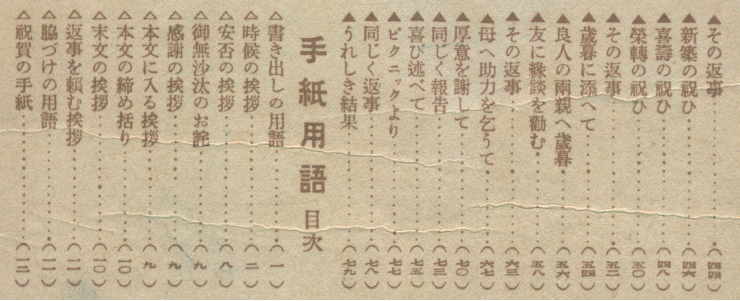 ▲その返事…………(四四)
▲新築の祝ひ…………(四六)
▲喜壽の祝ひ…………(四八)
▲榮轉の祝ひ…………(五〇)
▲その返事…………(五二)
▲歲暮に添へて…………(五四)
▲良人の兩親へ歲暮…………(五六)
▲友に緣談を勸む…………(五八)
▲その返事…………(六三)
▲母へ助力を乞うて…………(六七)
▲厚意を謝して…………(七〇)
▲同じく報告…………(七三)
▲喜び述べて…………(七五)
▲ピクニックより…………(七七)
▲同じく返事…………(七八)
▲うれしき結果…………(七九)
手紙用語 目次
△書き出しの用語…………(一)
△時候の挨拶…………(二)
△安否の挨拶…………(八)
△御無沙汰のお詫…………(九)
△感謝の挨拶…………(九)
△本文に入る挨拶…………(九)
△本文の締め括り…………(一〇)
△末文の挨拶…………(一〇)
△返事を賴む挨拶…………(一一)
△脇づけの用語…………(一一)
△祝賀の手紙…………(一二)